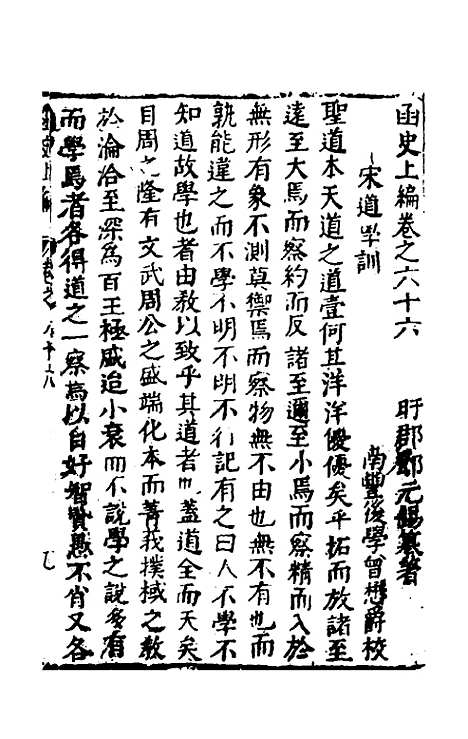 函史上編卷之六十六
旴郡鄧元錫纂著
南豐後學曾懋爵校
宋道學訓
聖道本天道之道壹何其洋洋優優矣乎拓而放諸至
遠至大焉而察約而反諸至邇至小焉而察精而入於
無形有象不測莫禦焉而察物無不由也無不有也而
孰能違之而不學不明不明不行記有之曰人不學不
知道故學也者由教以致乎其道者也蓋道全而天矣
目周之隆有文武周公之盛端化本而菁莪樸棫之教
於淪洽至深爲百王極盛迨小衰而不說學之說多有
而學焉者各得道之一察焉以自好智賢愚不肖又各